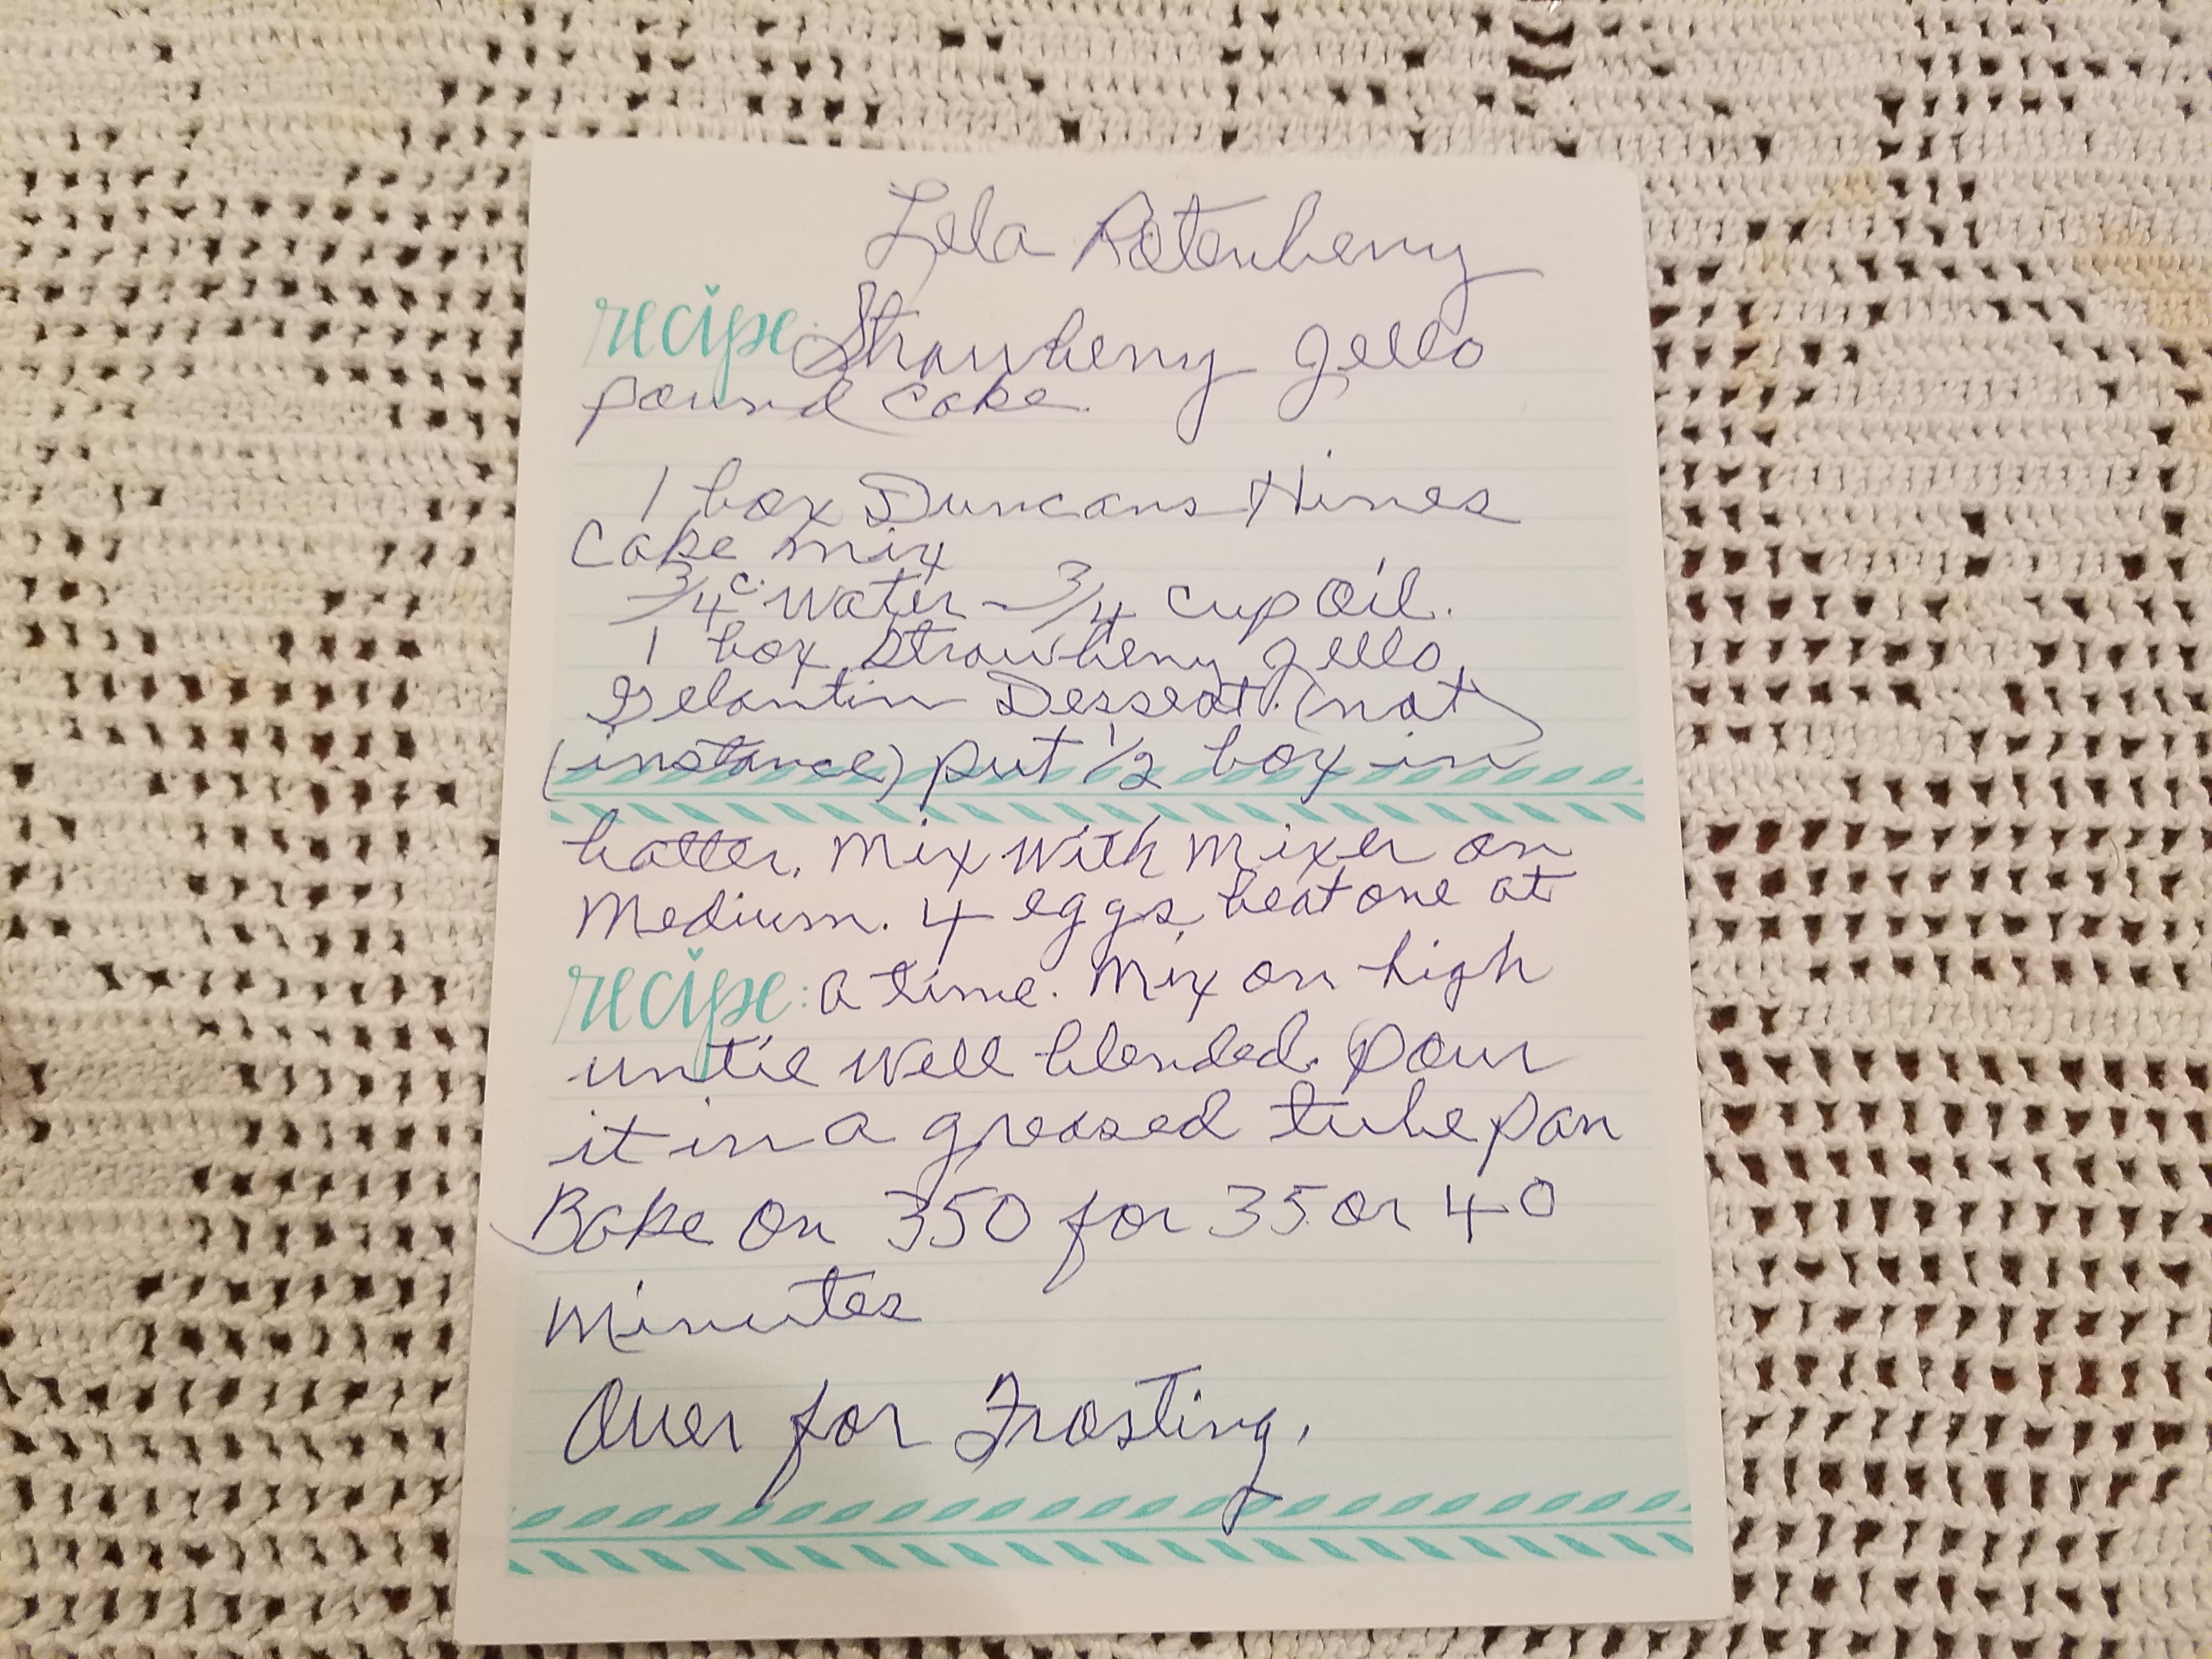 Lela Rotenberry
recipe: Strawberry Jello
pound cake.
1 box Duncans Hines
Cake mix
3/4 c. water - 3/4 cup oil.
1 box Strawberry Jello
Gelantin Desseat. (not)
(instance) put 1/2 box in
batter. Mix with Mixer on
Medium. 4 eggs, beat one at
recipe: a time. Mix on high
until well blended. Pour
it in a greased tube pan
Bake on 350 for 35 or 40
Minutes
Over for Frosting.